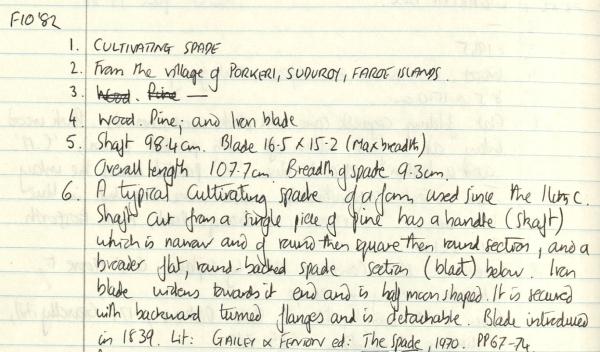 F10'82
1. CULTIVATING SPADE
2. From the village of PORKERI, SUDUROY, FAROE ISLANDS.
3. Wood. Pine —
4. Wood. Pine; and Iron blade
5. Shaft 98.4cm. Blade 16.5 x 15.2 (Max breadth)
Overall length 107.7cm. Breadth of spade 9.3cm.
6. A typical cultivating spade of a form used since the C.
Shaft cut from a single piece of pine has a handle (skaft)
which is narrow and of round then square then round section, and a
broader flat, round-backed spade section (blað) below. Iron
blade widens towards it end and is half moon shaped. It is secured
with backward turned flanges and is detachable. Blade introduced
in 1839. Lit: GAILEY & FENTON ed: The Spade, 1970. PP67-74.